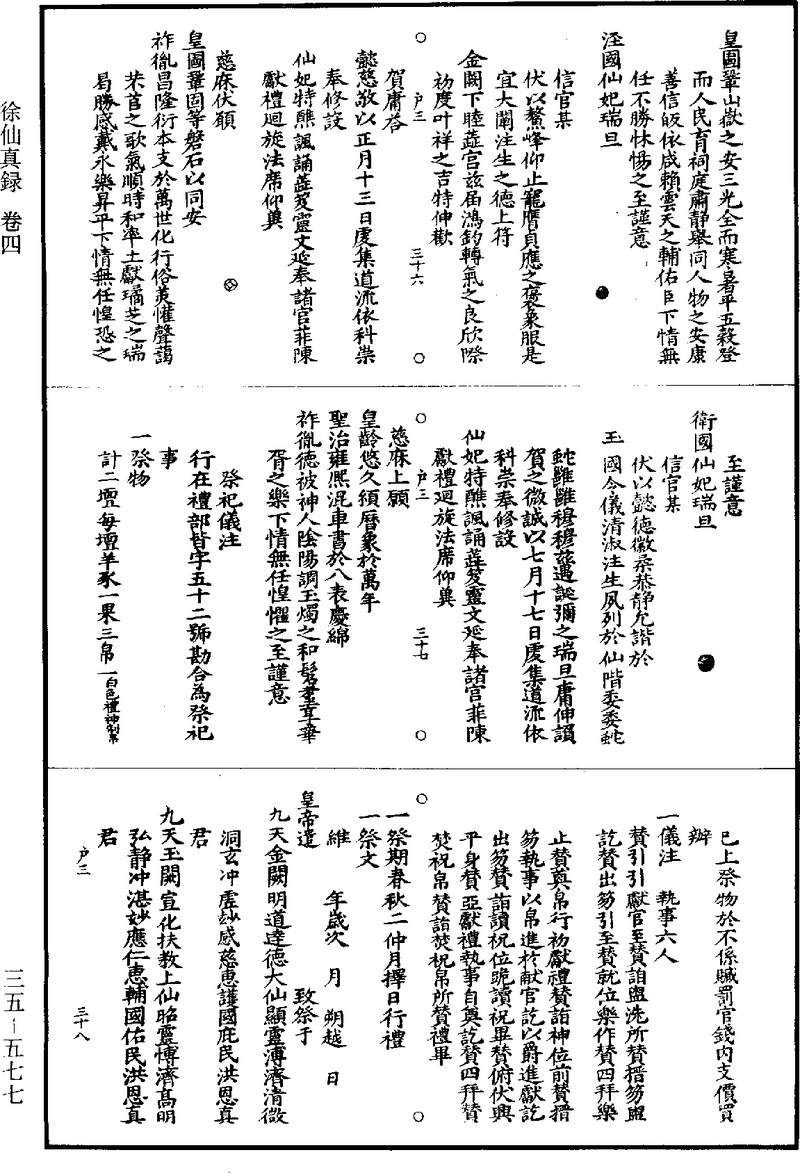 徐仙真録 卷四
三五－五七七
皇圖鞏山嶽之安三光全而寒暑平五穀登
而人民育祠庭肅靜舉同人物之安康
善信皈依咸賴雲天之輔佑臣下情無
任不勝怵惕之至謹意
涇國仙妃瑞旦
信官某
伏以鰲峰仰止龍膺貞應之褒象服是
宜大闡注生之德上符
金闕下睦蕋宮兹届鴻鈞轉氣之良欣際
初度叶祥之吉特伸歡
賀庸荅
戶三 三十六
懿慈敬以正月十三日虔集道流依科崇
奉修設
仙妃特醮諷誦蕋笈靈文延奉諸官菲陳
獻禮迴旋法席仰兾
慈庥伏願
皇圖鞏固等磐石以同安
祚胤昌隆衍本支於萬世化行俗羙懽聲藹
芣苢之歌氣順時和率土獻璚芝之瑞
曷勝感戴永樂昇平下情無任惶恐之
至謹意
衛國仙妃瑞旦
信官某
伏以懿德徽柔恭靜允諧於
玉國令儀清淑注生夙列於仙階委委蛇
蛇雝雝穆穆兹遇誕彌之瑞旦庸伸頌
賀之微誠以七月十七日虔集道流依
科崇奉修設
仙妃特醮諷誦蕋笈靈文延奉諸官菲陳
獻禮迴旋法席仰兾
戶三 三十七
慈庥上願
皇齡悠久須曆象於萬年
聖治雍熈混車書於八表慶綿
祚胤德被神人陰陽調玉燭之和髫耋享華
胥之樂下情無任惶懼之至謹意
祭祀儀注
行在禮部皆字五十二號勘合為祭祀
事
一祭物
計二壇每壇羊豕一果三帛一白色禮神制帛
已上祭物於不係贓罰官錢內支價買
辦
一儀注 執事六人
贊引引獻官至贊詣盥洗所贊搢笏盥
訖贊出笏引至贊就位樂作贊四拜樂
止贊奠帛行初獻禮贊詣神位前贊搢
笏執事以帛進於献官訖以爵進獻訖
出笏贊詣讀祝位跪讀祝畢贊俯伏興
平身贊亞獻禮執事自奠訖贊四拜贊
焚祝帛贊詣焚祝帛所贊禮畢
一祭期春秋二仲月擇日行禮
一祭文
維 年歲次 月 朔越 日
皇帝遣 致祭于
九天金闕明道逹德大仙顯靈溥濟清微
洞玄冲虛妙感慈惠護國庇民洪恩真
君
九天玉闕宣化扶教上仙昭靈博濟髙明
弘靜冲湛妙應仁惠輔國佑民洪恩真
君
戶三 三十八